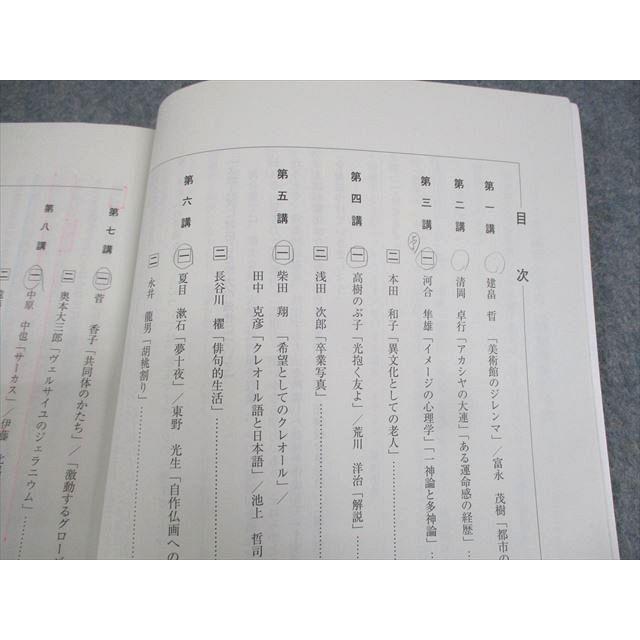 目次
第一講 建畠 哲「美術館のジレンマ」／富永 茂樹「都市の
第二講 清岡 卓行「アカシヤの大連」「ある運命感の経歴」
第三講 一 河合 隼雄「イメージの心理学」「一神論と多神論」
二 本田 和子「異文化としての老人」
第四講 一 高樹のぶ子「光抱く友よ」／荒川 洋治「解説」
二 浅田 次郎「卒業写真」
第五講 一 柴田 翔「希望としてのクレオール」／
田中 克彦「クレオール語と日本語」／池上 哲司
二 長谷川 櫂「俳句的生活」
第六講 一 夏目 漱石「夢十夜」／東野 光生「自作仏画への
二 永井 龍男「胡桃割り」
第七講 一 菅 香子「共同体のかたち」／「激動するグローバ
二 奥本大三郎「ヴェルサイユのジェラニウム」
第八講 一 中原 中也「サーカス」／伊藤
二